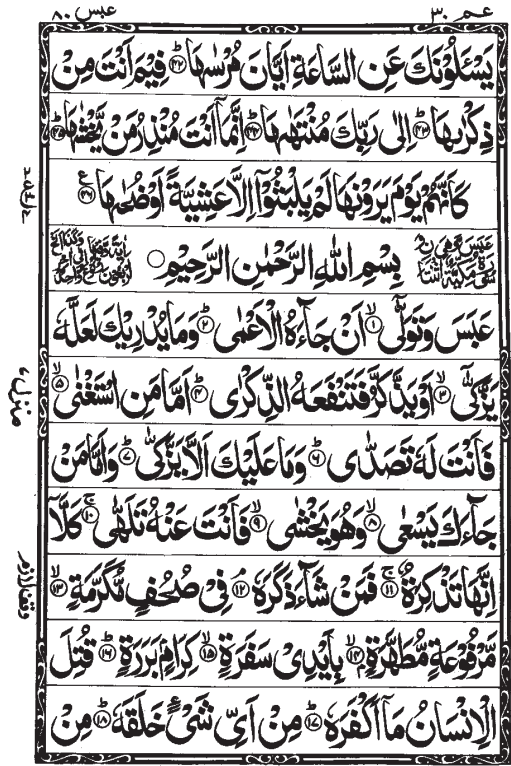 عمّ ٣٠
عبس ٨٠
يَسْـَٔلُوْنَكَ عَنِ السَّاعَةِ اَيَّانَ مُرْسٰىهَا ﴿٤٢﴾ فِيْمَ اَنْتَ مِنْ
ذِكْرٰىهَا ﴿٤٣﴾ اِلٰى رَبِّكَ مُنْتَهٰىهَا ﴿٤٤﴾ اِنَّمَاۤ اَنْتَ مُنْذِرُ مَنْ يَّخْشٰىهَا ﴿٤٥﴾
كَاَنَّهُمْ يَوْمَ يَرَوْنَهَا لَمْ يَلْبَثُوْۤا اِلَّا عَشِيَّةً اَوْ ضُحٰىهَا ﴿٤٦﴾
بِسْمِ اللهِ الرَّحْمٰنِ الرَّحِيْمِ
عَبَسَ وَتَوَلّٰٓى ﴿١﴾ اَنْ جَآءَهُ الْاَعْمٰى ﴿٢﴾ وَمَا يُدْرِيْكَ لَعَلَّهٗ
يَزَّكّٰٓى ﴿٣﴾ اَوْ يَذَّكَّرُ فَتَنْفَعَهُ الذِّكْرٰى ﴿٤﴾ اَمَّا مَنِ اسْتَغْنٰى ﴿٥﴾
فَاَنْتَ لَهٗ تَصَدّٰى ﴿٦﴾ وَمَا عَلَيْكَ اَلَّا يَزَّكّٰى ﴿٧﴾ وَاَمَّا مَنْ
جَآءَكَ يَسْعٰى ﴿٨﴾ وَهُوَ يَخْشٰى ﴿٩﴾ فَاَنْتَ عَنْهُ تَلَهّٰى ﴿١٠﴾ كَلَّاۤ
اِنَّهَا تَذْكِرَةٌ ﴿١١﴾ فَمَنْ شَآءَ ذَكَرَهٗ ﴿١٢﴾ فِيْ صُحُفٍ مُّكَرَّمَةٍ ﴿١٣﴾
مَّرْفُوْعَةٍ مُّطَهَّرَةٍۭ ﴿١٤﴾ بِاَيْدِيْ سَفَرَةٍ ﴿١٥﴾ كِرَامٍۭ بَرَرَةٍ ﴿١٦﴾ قُتِلَ
الْاِنْسَانُ مَاۤ اَكْفَرَهٗ ﴿١٧﴾ مِنْ اَيِّ شَيْءٍ خَلَقَهٗ ﴿١٨﴾ مِنْ
منزل ٧